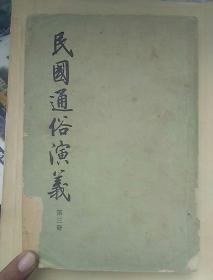 民國通俗演義
第三冊